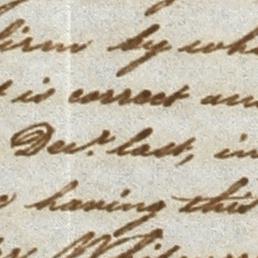 firm by wha
t is correct and
Decr. last, in
having this